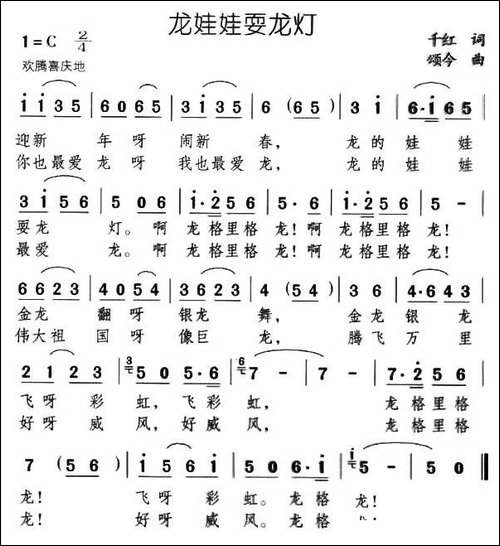 龙娃娃耍龙灯
1=C 2/4
千红 词
颂今 曲
欢腾喜庆地
i i 3 5 | 6 0 6 5 | 3 i 3 5 | 6 (6 5) | 3 i | 6·i 6 5 |
迎新 年呀 闹新 春, 龙的 娃娃
你也最爱 龙呀 我也最爱 龙, 龙的 娃娃
3 i 5 6 | 5 0 6 | i·2 5 6 | 5·6 | i·2 5 6 | 5 - |
耍龙 灯。啊 龙格里格 龙!啊 龙格里格 龙!
最爱 龙。啊 龙格里格 龙!啊 龙格里格 龙!
6 6 2 3 | 4 0 5 4 | 3 6 2 3 | 4 (5 4) | 3 6 | 4·6 4 3 |
金龙 翻呀 银龙 舞, 金龙 银龙
伟大祖 国呀 像巨 龙, 腾飞 万里
2 1 2 3 | 5 0 5·6 | 7 - | 7 - | 7·2 5 6 |
飞呀彩 虹,飞彩 虹, 龙格里格
好呀威 风,好威 风, 龙格里格
7 (5 6) | i 5 6 i | 5 0 6·i | 5 - | 5 0 ‖
龙! 飞呀 彩 虹。龙格 龙!
龙! 好呀 威 风。龙格